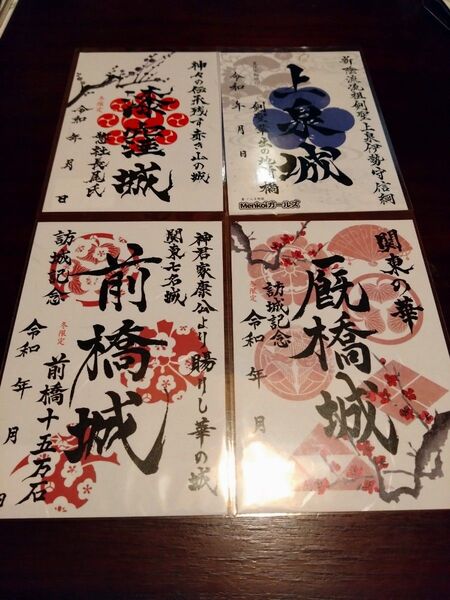 神々の伝承残す赤き山の城
漆窪城
冬限定
惣社長尾氏
令和 年 月 日
新陰流流祖剣聖上泉伊勢守信綱
上泉城
の地前橋
令和 年 月 日
Menkoiガールズ
神君家康公より賜りし華の城
関東七名城
前橋城
冬限定
前橋十五万石
訪城記念
令和 年 月 日
関東の華
厩橋城
訪城記念
冬限定
令和 年 月